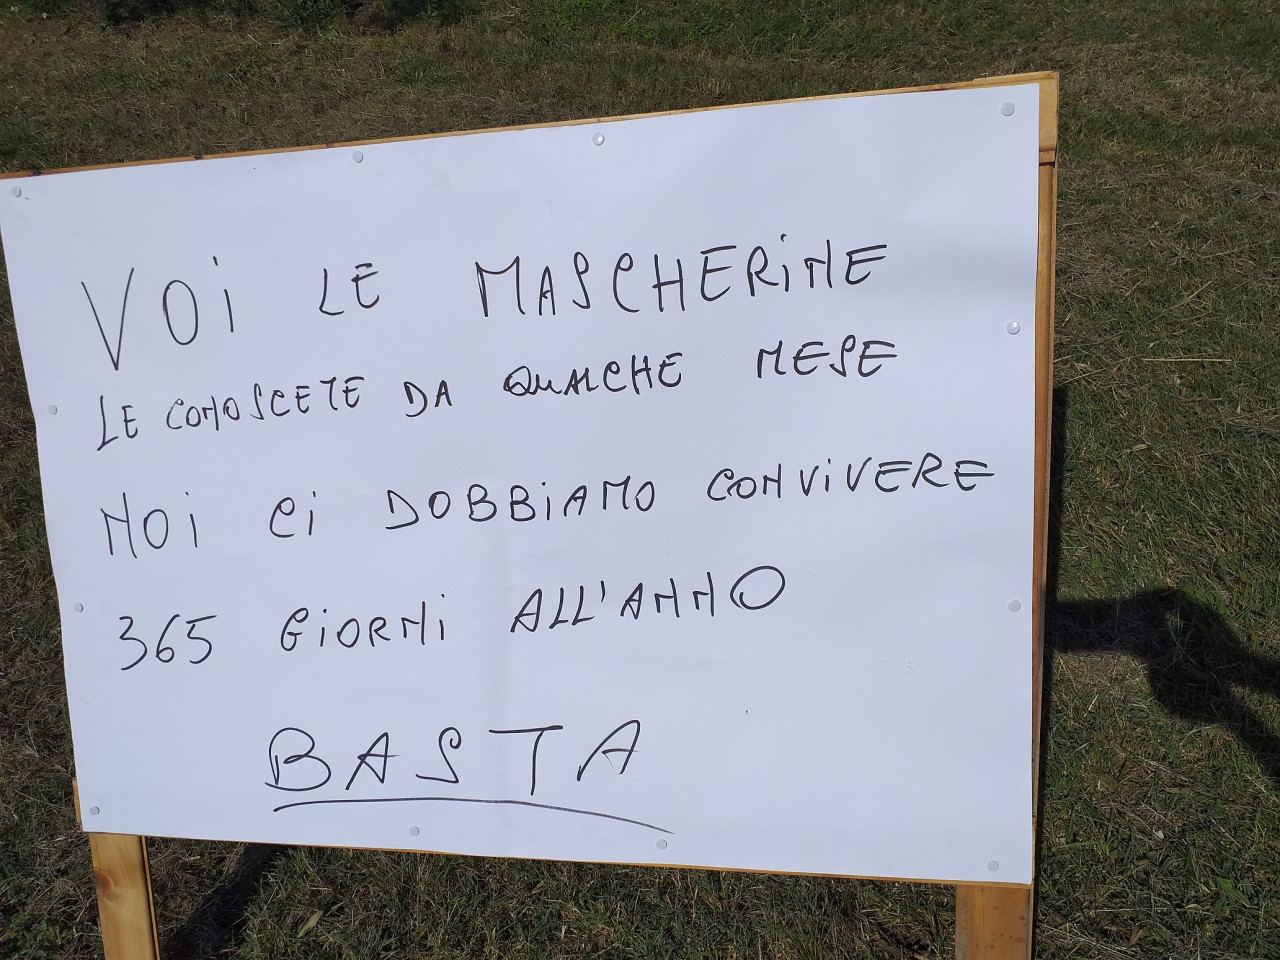 VOI LE MASCHERINE
LE CONOSCETE DA QUALCHE MESE
NOI CI DOBBIAMO CONVIVERE
365 GIORNI ALL'ANNO
BASTA